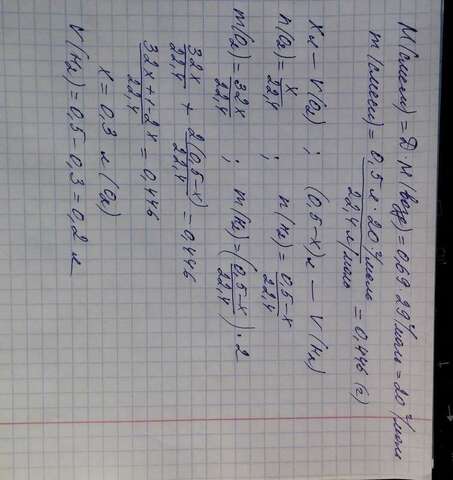 M(смеси) = D·M(возд) = 0,69·29 г/моль = 20 г/моль
m(смеси) = \frac{0,5 л · 20 г/моль}{22,4 л/моль} = 0,446 (г)
X л – V(O₂) ; (0,5-x) л – V(H₂)
n(O₂) = \frac{x}{22,4} ; n(H₂) = \frac{0,5-x}{22,4}
m(O₂) = \frac{32x}{22,4} ; m(H₂) = (\frac{0,5-x}{22,4})·2
\frac{32x}{22,4} + \frac{2(0,5-x)}{22,4} = 0,446
\frac{32x+1-2x}{22,4} = 0,446
x = 0,3 л (O₂)
V(H₂) = 0,5-0,3 = 0,2 л